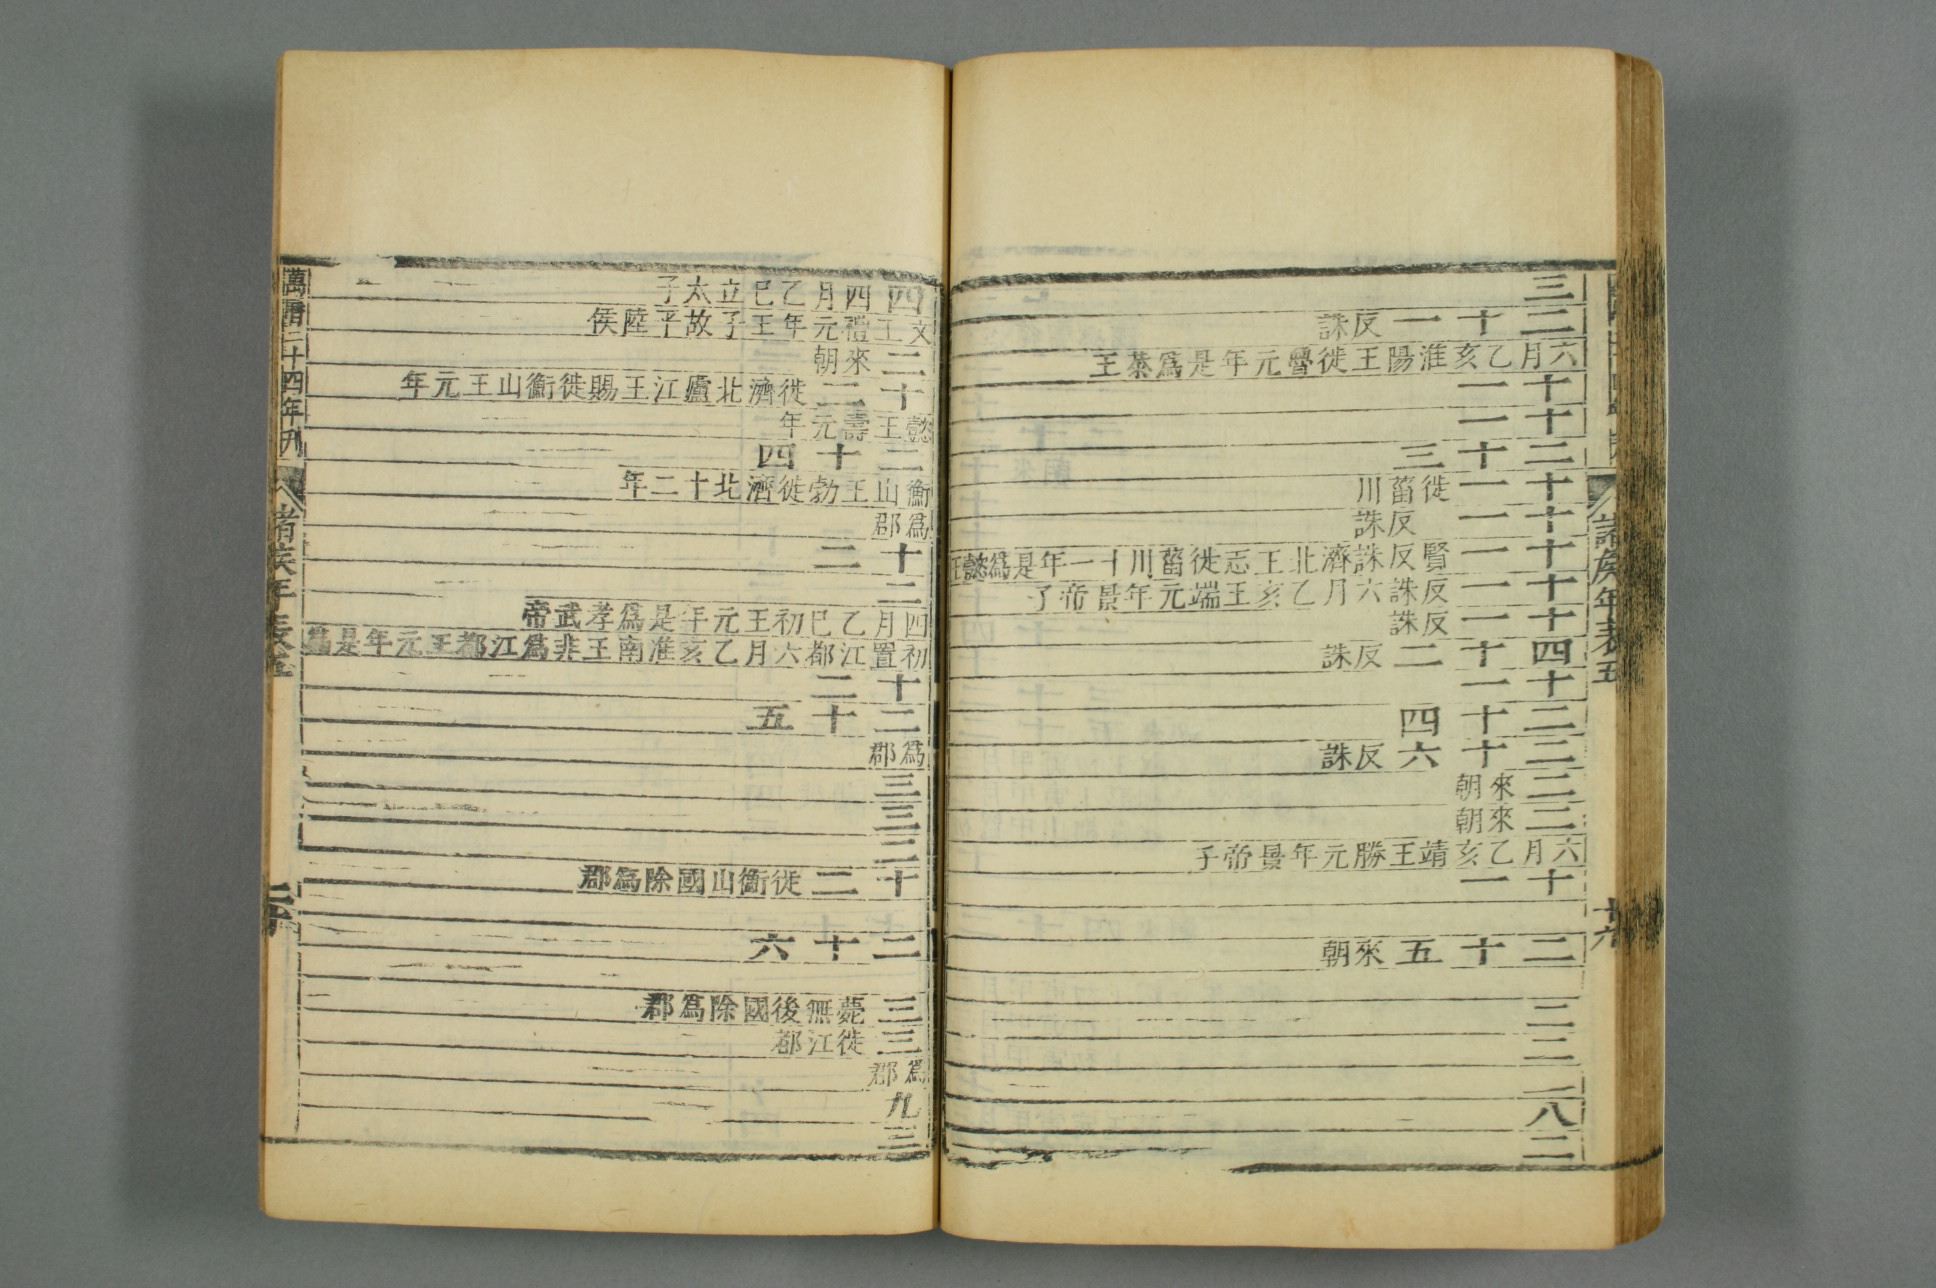 諸侯年表五
廿六
三
二十一反誅
六月乙亥淮陽王徙魯元年是爲恭王
十一
十一
二十三
十一徙菑川
十一反誅
十一賢反誅濟北王志徙菑川十一年是爲懿王
十一反誅六月乙亥王端元年景帝子
十一反誅
四十二反誅
十一
二十四
二十六反誅
二來朝
二來朝
六月乙亥靖王勝元年景帝子
十一
二十五來朝
二
二
二
八
二
四四月乙巳立太子
文王禮元年王子故平陸侯
二來朝
十二徙濟北廬江王賜徙衡山王元年
懿王壽元年
二十四
衡山王勃徙濟北十二年
爲郡
十二
二
四月乙巳初王元年是爲孝武帝
初置江都六月乙亥淮南王非爲江都王元年是爲
十二
二十五
爲郡
三
三
三
十二徙衡山國除爲郡
二十六
三薨無後國除爲郡
三徙江都
爲郡
九
三
萬曆二十四年刊
諸侯年表五